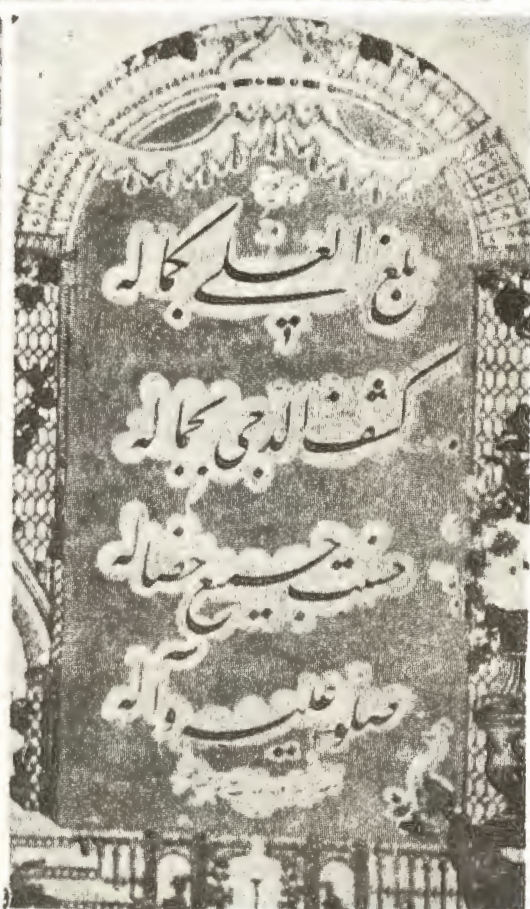 بلغ العلی بکماله
کشف الدجی بجماله
حسنت جمیع خصاله
صلو علیه وآله